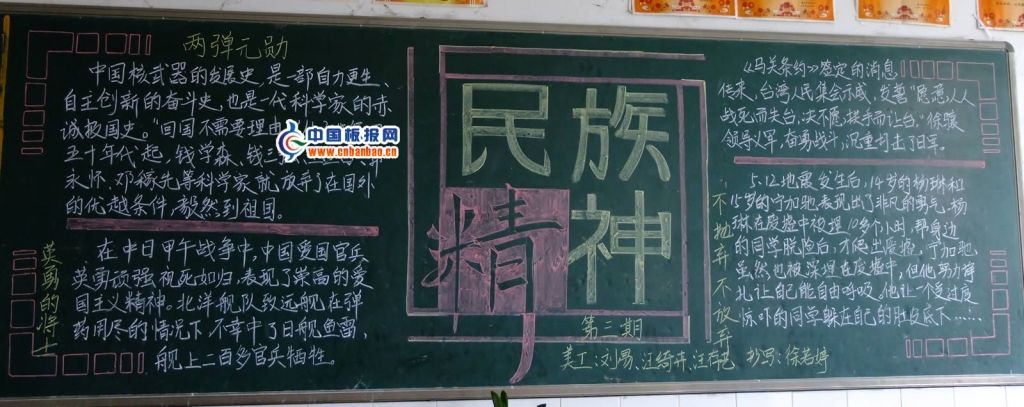 两弹元勋
中国核武器的发展史,是一部自力更生、
自主创新的奋斗史,也是一代科学家的赤
诚报国史。"回国不需要理由
五十年代起,钱学森、钱三
永怀、邓稼先等科学家就放弃了在国外
的优越条件,毅然到祖国。
英勇的将士
在中日甲午战争中,中国爱国官兵
英勇顽强视死如归,表现了崇高的爱
国主义精神。北洋舰队致远舰在弹
药用尽的情况下不幸中了日舰鱼雷,
舰上二百多官兵牺牲。
中国板报网
www.cnbanbao.cn
民族
精神
第三期
美工:刘易、汪绮卉、汪 抄写:徐若婷
《马关条约》签定的消息
传来,台湾人民集会示威,发誓"愿人人
战死而失台,决不愿拱手而让台。"徐骧
领导义军,奋勇战斗,沉重打击了日军。
不抛弃不放弃
5.12地震发生后,14岁的杨琳和
15岁的宁加驰表现出了非凡的勇气。杨
琳在废墟中被埋10多个小时,帮身边
的同学脱险白,才爬出废墟,宁加驰
虽然也被深埋在废墟中,但他努力挣
扎让自己能自由呼吸。他让一个受过度
惊吓的同学躲在自己的肚皮底下……